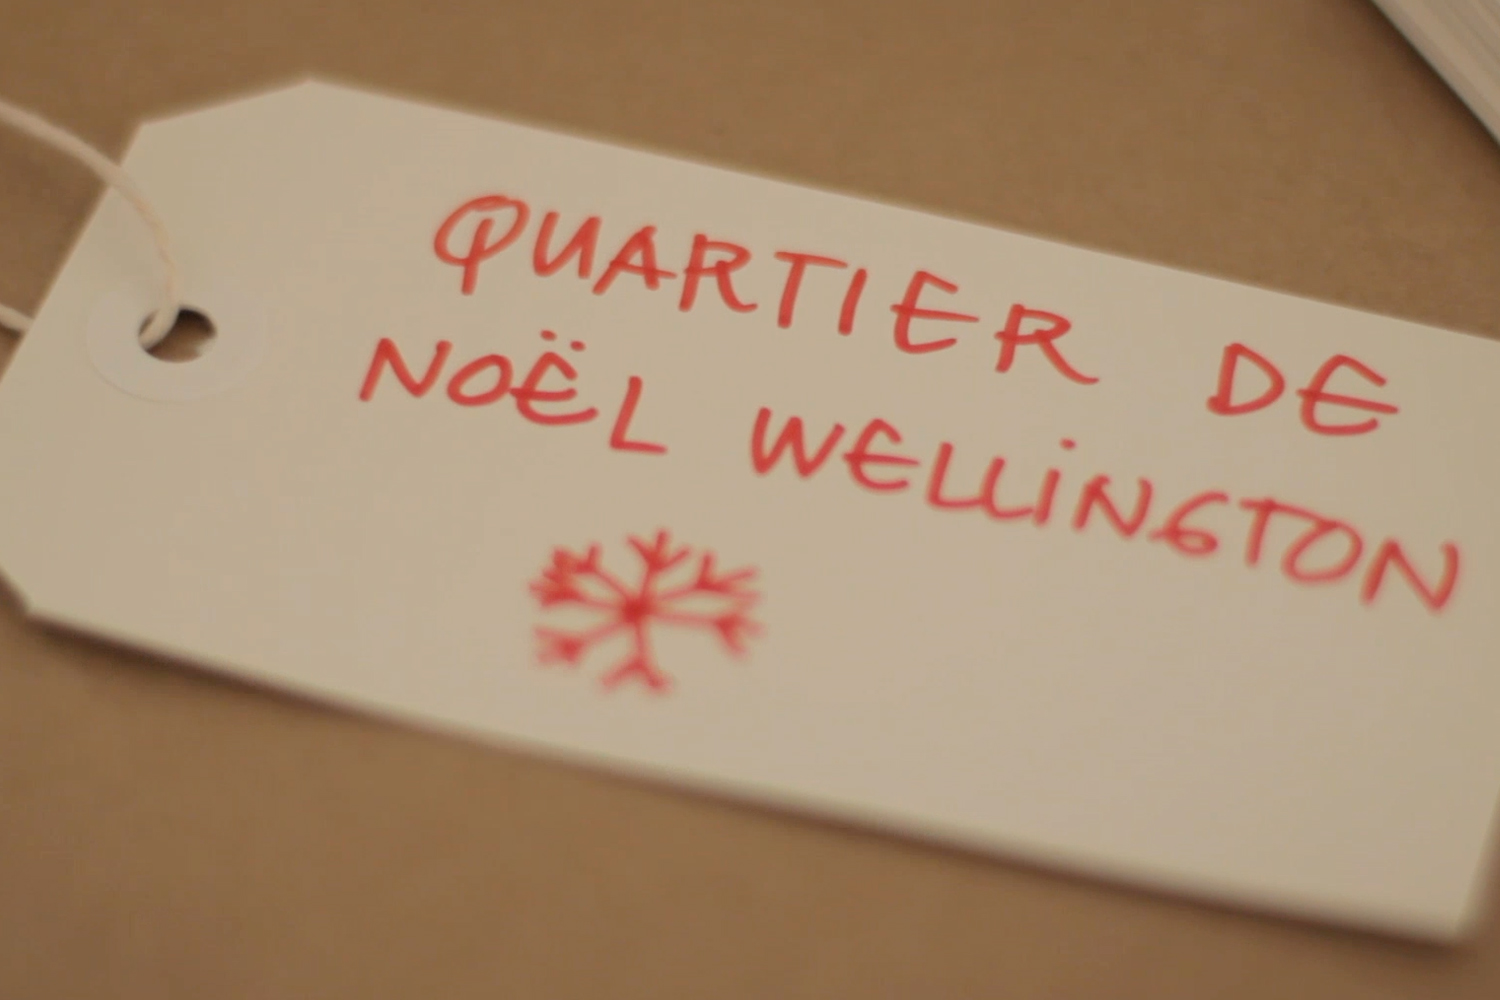 QUARTIER DE
NOËL WELLINGTON